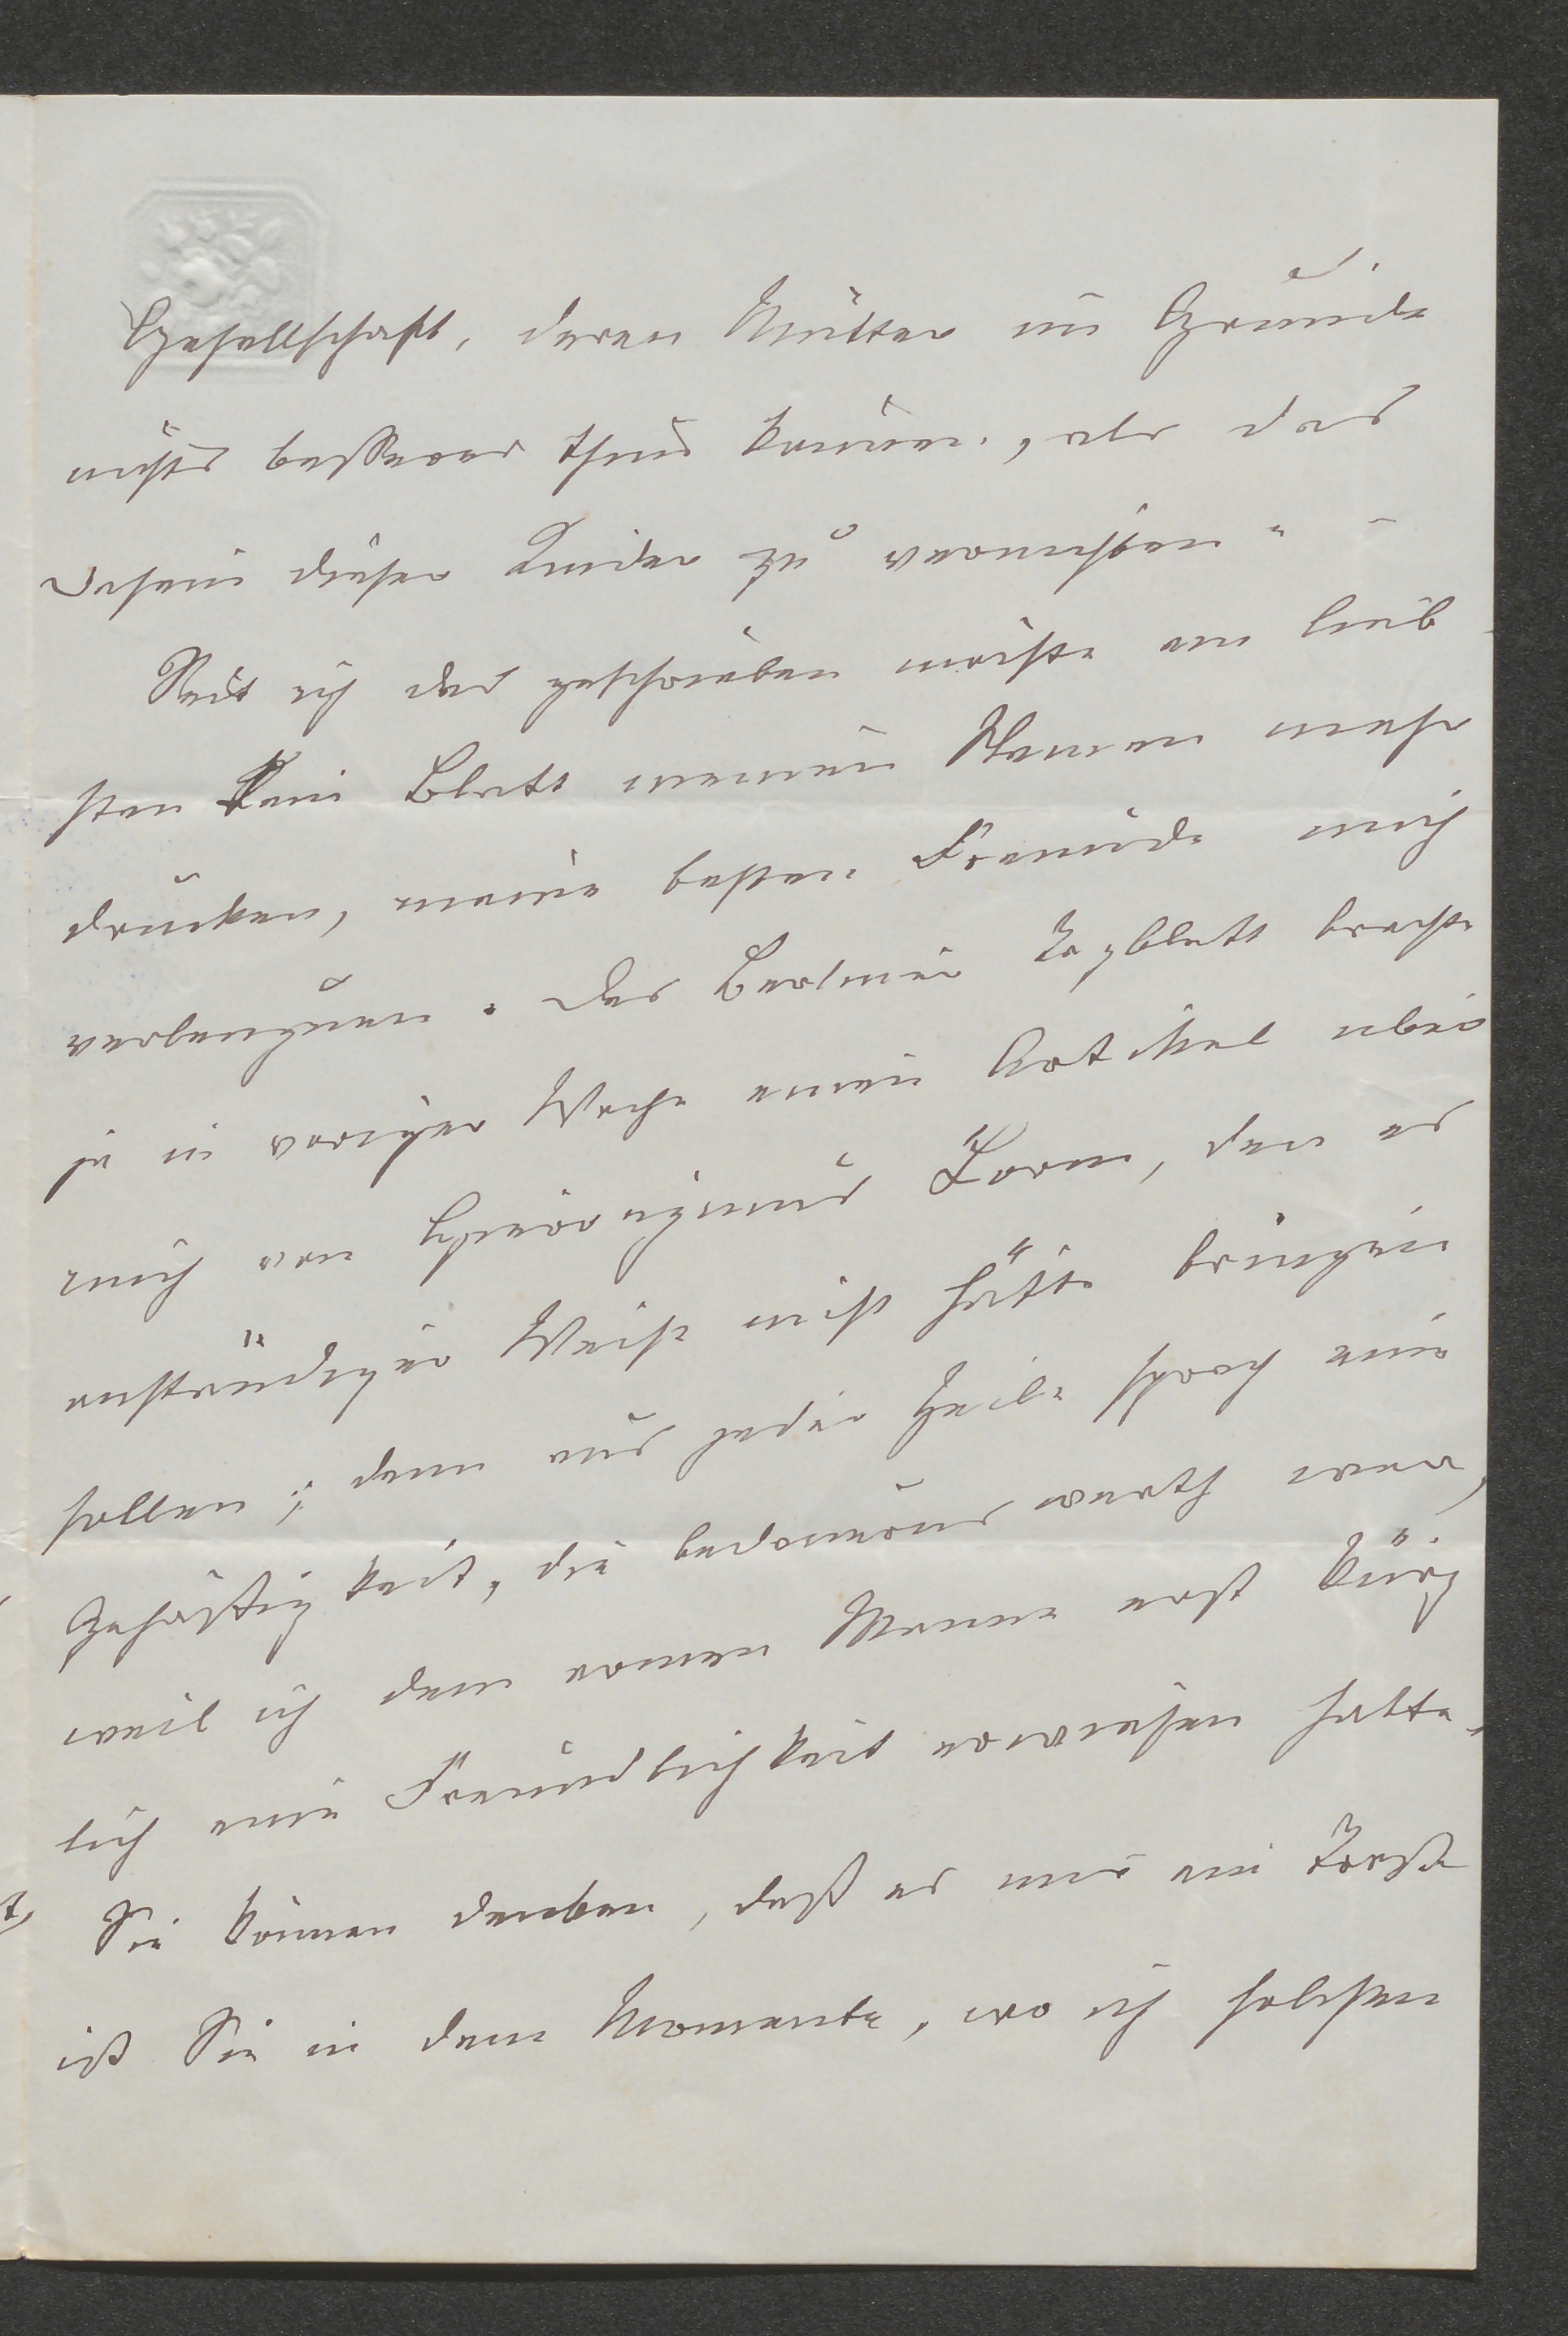 Gesellschaft, deren Mütter im Grunde
nichts besseres thun können, als das
Dasein dieser Kinder zu vernichten" –
Seit ich das geschrieben möchte am lieb-
sten kein Blatt meinen Namen mehr
drucken, meine besten Freunde mich
verleugnen. Das Berliner Tagblatt brachte
ja in voriger Woche einen Artikel über
mich von Hieronymus Lorm, den es
anständiger Weise nicht hätte bringen
sollen; denn aus jeder Zeile sprach eine
Gehässigkeit, die bedauernswerth war,
weil ich dem armen Manne erst kürz
lich eine Freundlichkeit erwiesen hatte.
Sie können denken, daß es mir ein Trost
ist Sie in dem Momente, wo ich solchen